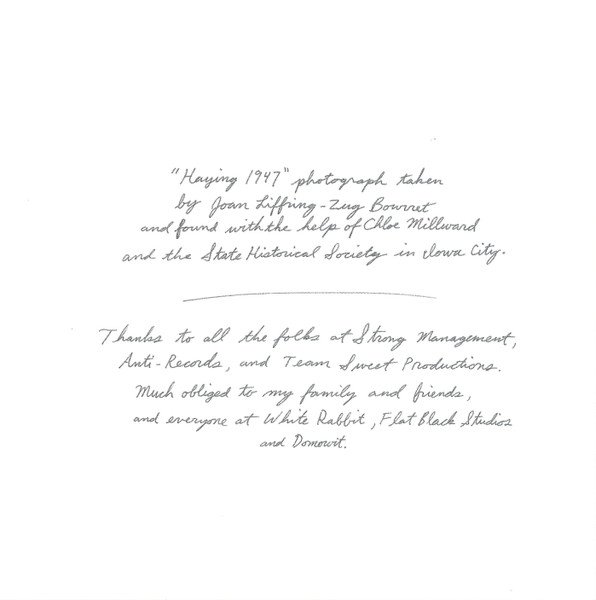 "Haying 1947" photograph taken
by Joan Liffring-Zug Bourret
and found with the help of Chloe Millward
and the State Historical Society in Iowa City.
Thanks to all the folks at Strong Management,
Anti-Records, and Team Sweet Productions.
Much obliged to my family and friends,
and everyone at White Rabbit, Flat Black Studios
and Domowit.